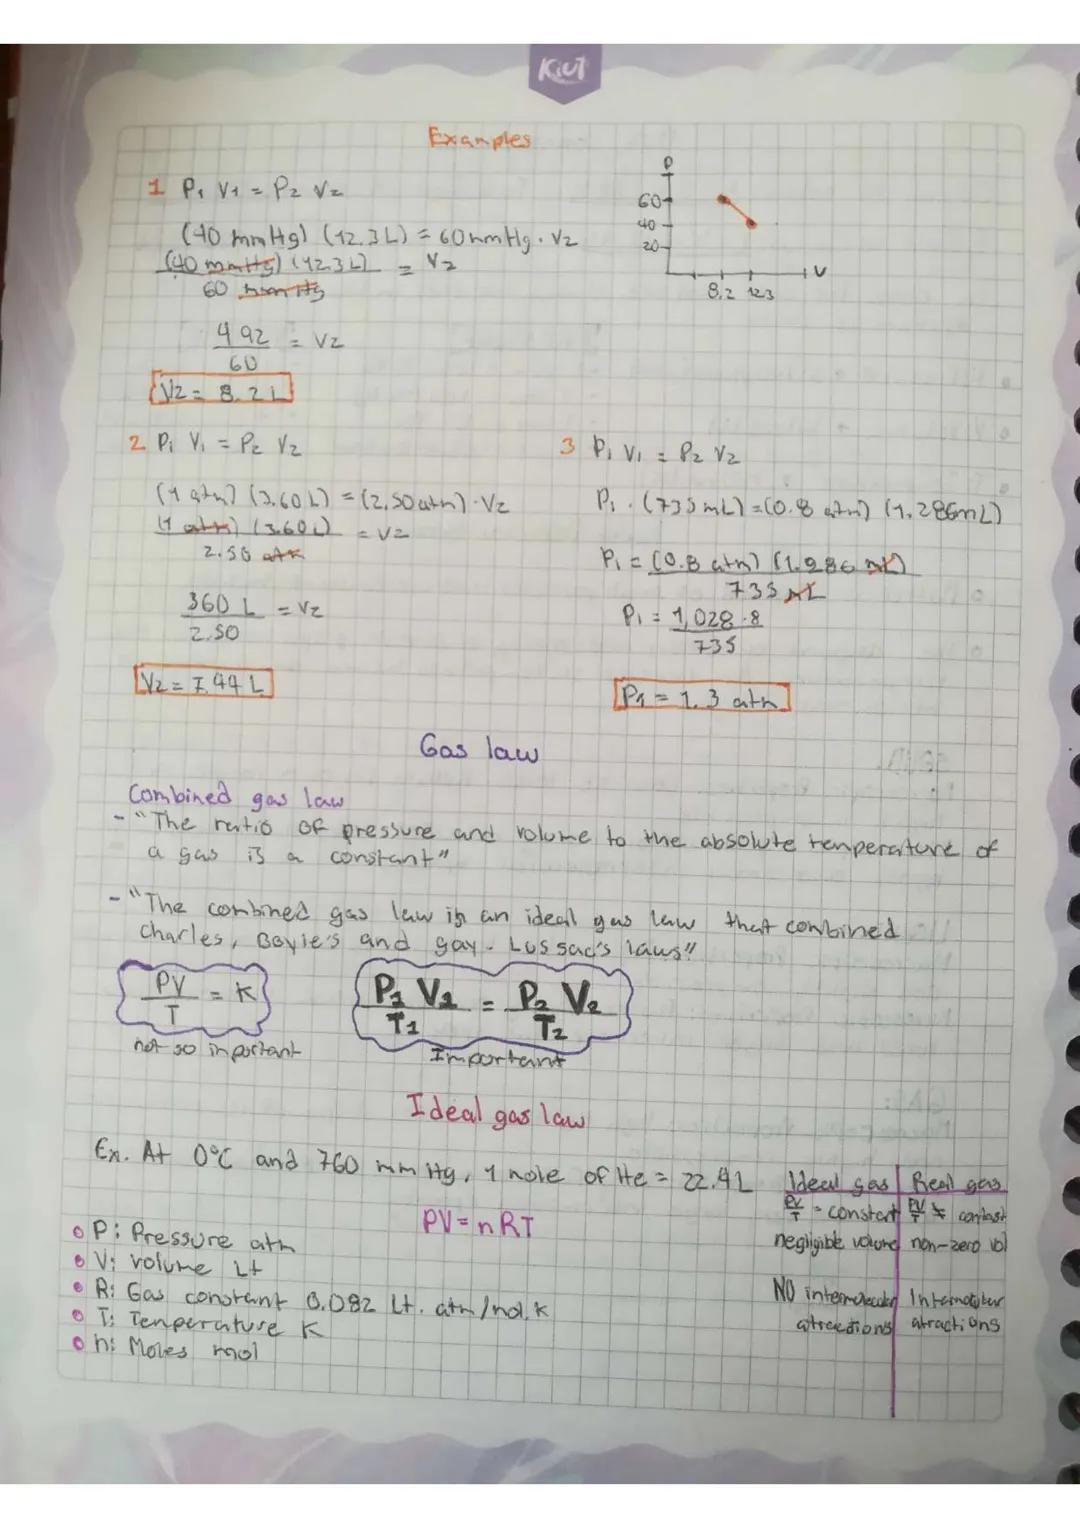 KiUT
Examples
1 P₁ V₁ = P₂ V₂
(40 mmHg) (12.3L) = 60mmHg · V₂
(40 mmHg) (12.3L) = V₂
60 mmHg
492 = V₂
60
V₂ = 8.2 L
P
60
40
20
V
8.2 12.3
2 P₁ V₁ = P₂ V₂
(1 atm) (3.60L) = (2.50atm)·V₂
(1 atm) (3.60L) = V₂
2.50 atm
360 L = V₂
2.50
V₂ = 1.44 L
3 P₁ V₁ = P₂ V₂
P₁ · (735mL)=(0.8 atm) (1.286mL)
P₁ = (0.8 atm) (1.286 mL)
735 mL
P₁ = 1,028.8
735
P₁ = 1.3 atm
Gas law
Combined gas law
- "The ratio of pressure and volume to the absolute temperature of
a gas is a constant"
- "The combined gas law is an ideal gas law that combined
Charles, Boyle's and gay-Lussac's laws"
PV = K
T
not so important
P₁ V₁ = P₂ V₂
T₁ T₂
Important
Ideal gas law
Ex. At 0°C and 760 mmHg, 1 mole of He = 22.4L
PV=nRT
• P: Pressure atm
• V: volume Lt
• R: Gas constant 0.082 Lt. atm/mol.K
• T: Temperature K
• n: Moles mol
Ideal gas | Real gas
PV/T = constant | PV/T ≠ constant
negligible volume | non-zero vol
NO intermolecular | Intermolecular
attractions | atractions